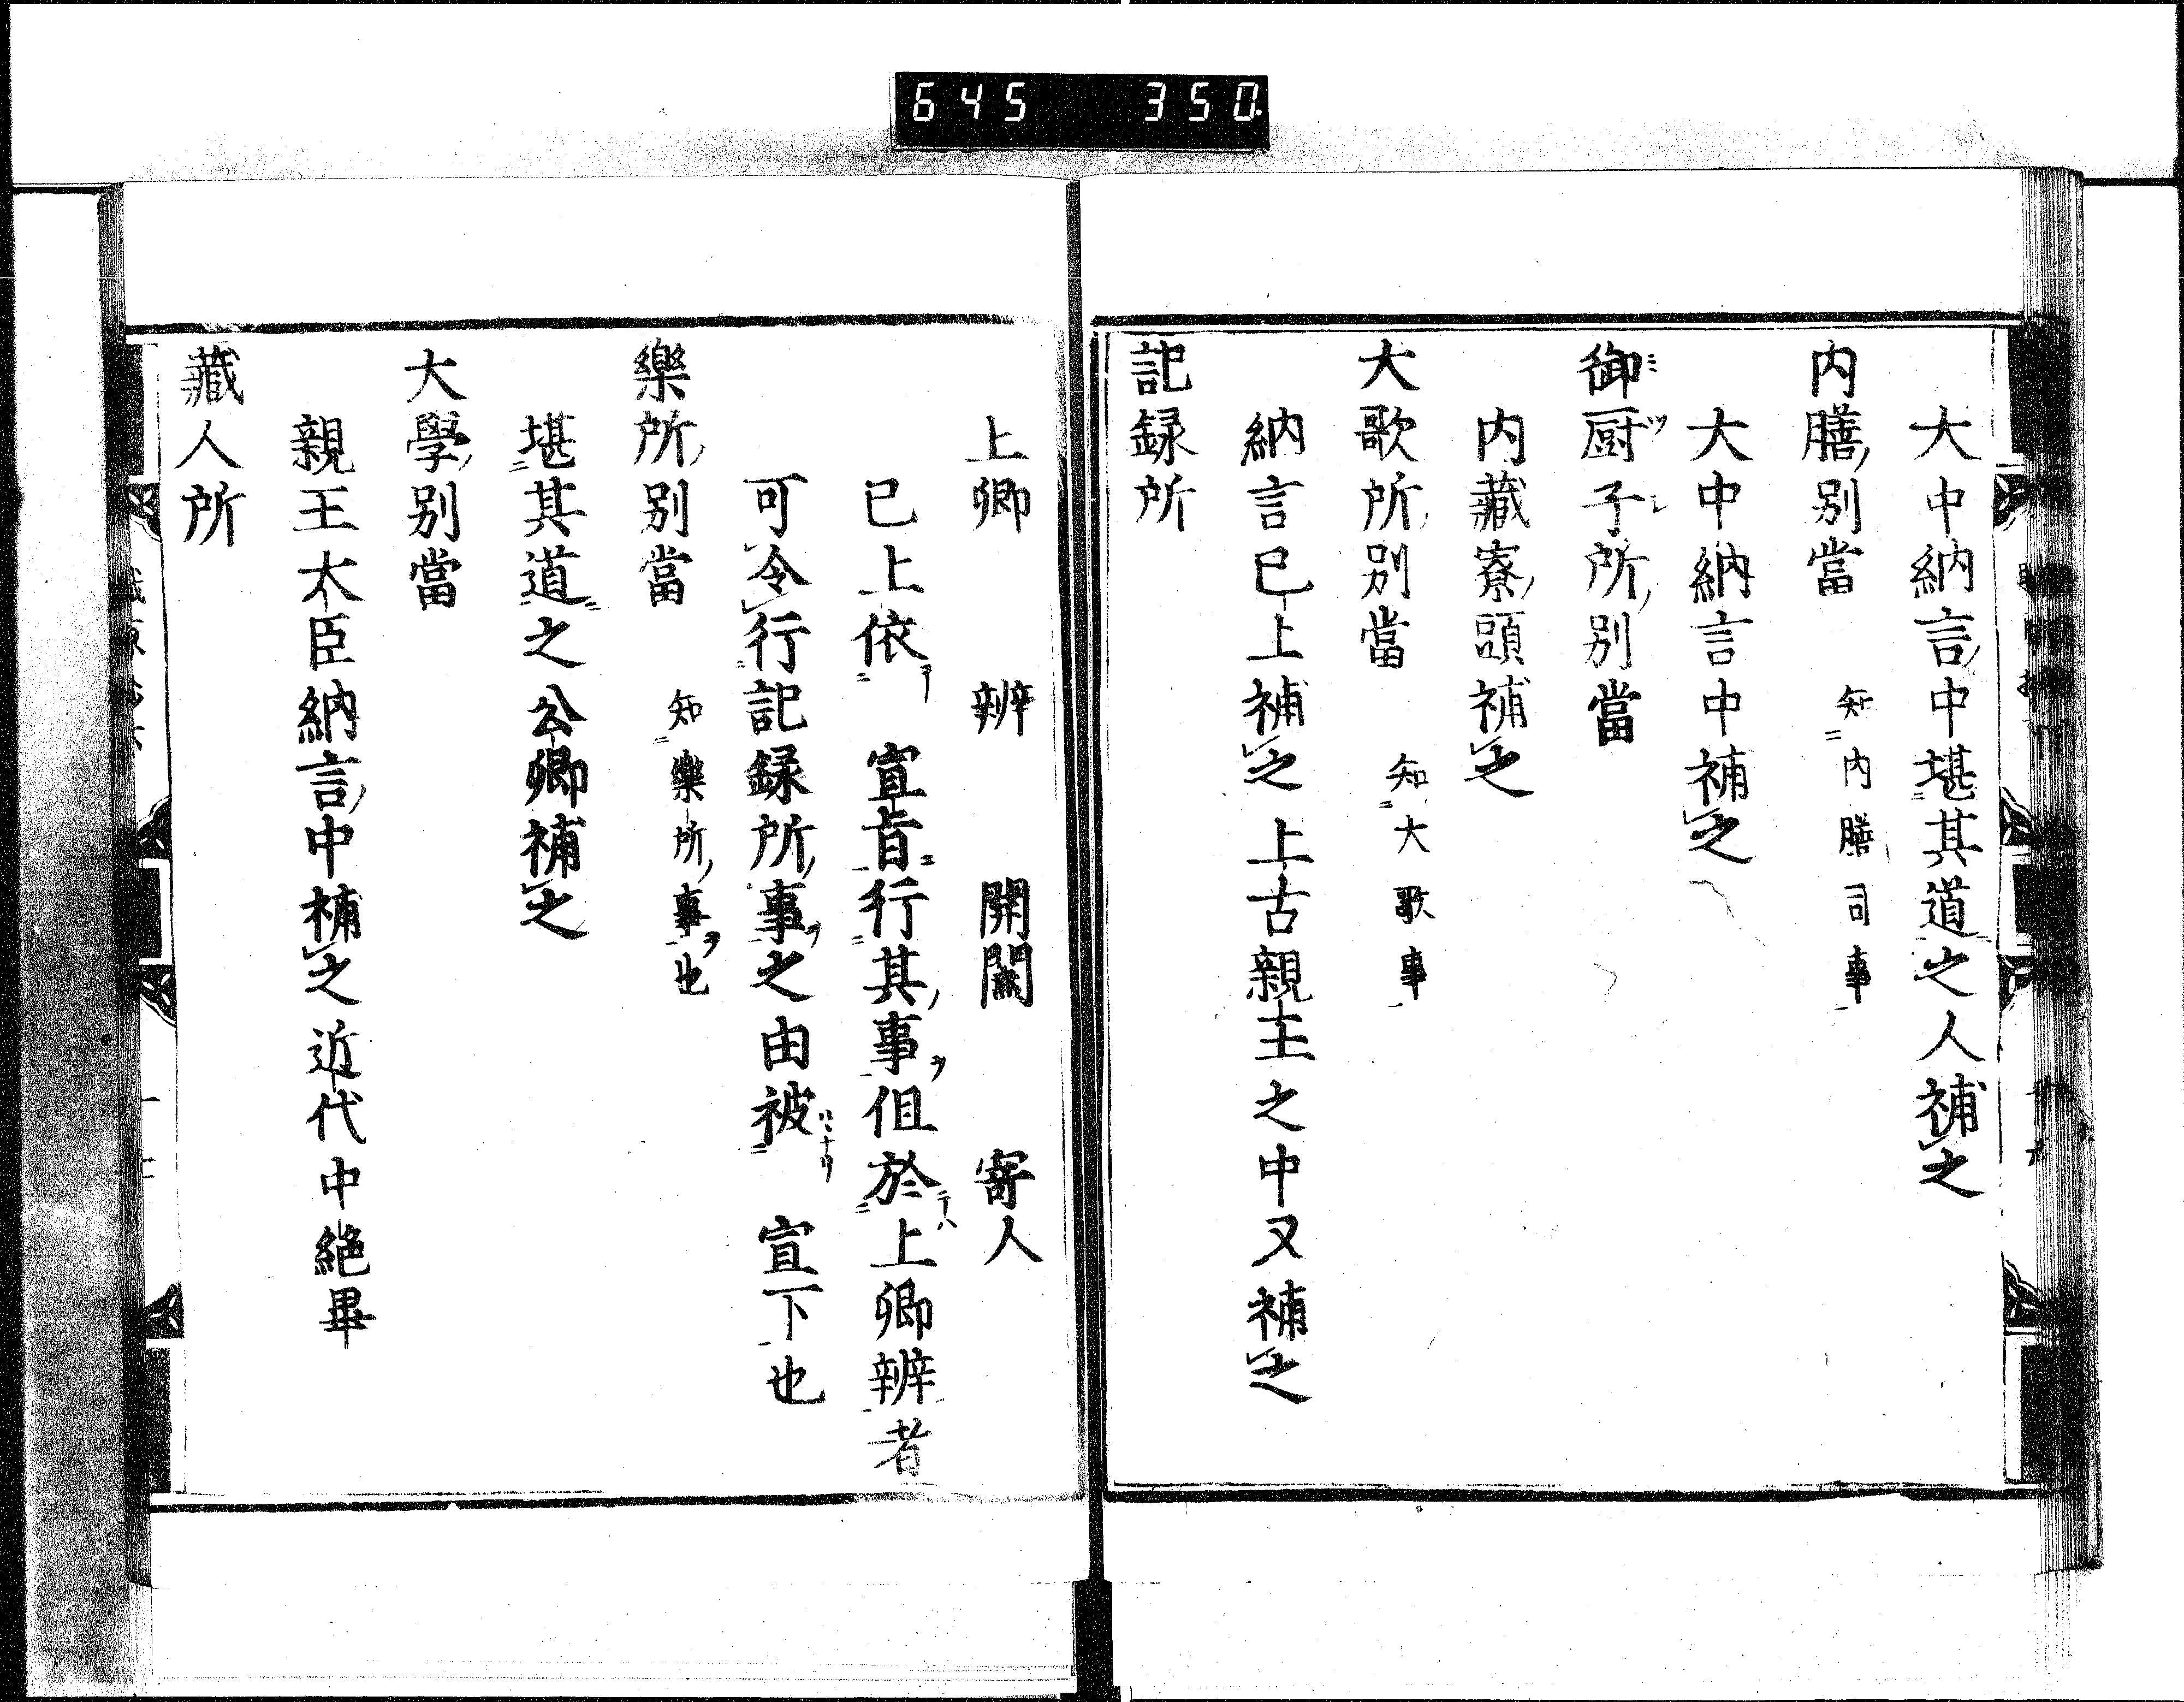 645 350
大中納言中堪其道之人補之
内膳別當 知内膳司事
大中納言中補之
御厨子所別當
内藏寮頭補之
大歌所別當 知大歌事
納言已上補之上古親王之中又補之
記録所
上卿 辨 開闔 寄人
已上依 宣旨行其事但於上卿辨者
可令行記録所事之由被 宣下也
樂所別當 知樂所事也
堪其道之公卿補之
大學別當
親王大臣納言中補之近代中絶畢
藏人所